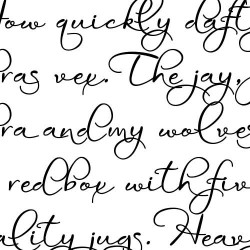 How quickly daft
bras vex. The jay,
ra and my wolves
redbox with fiv
ality jugs. Heav